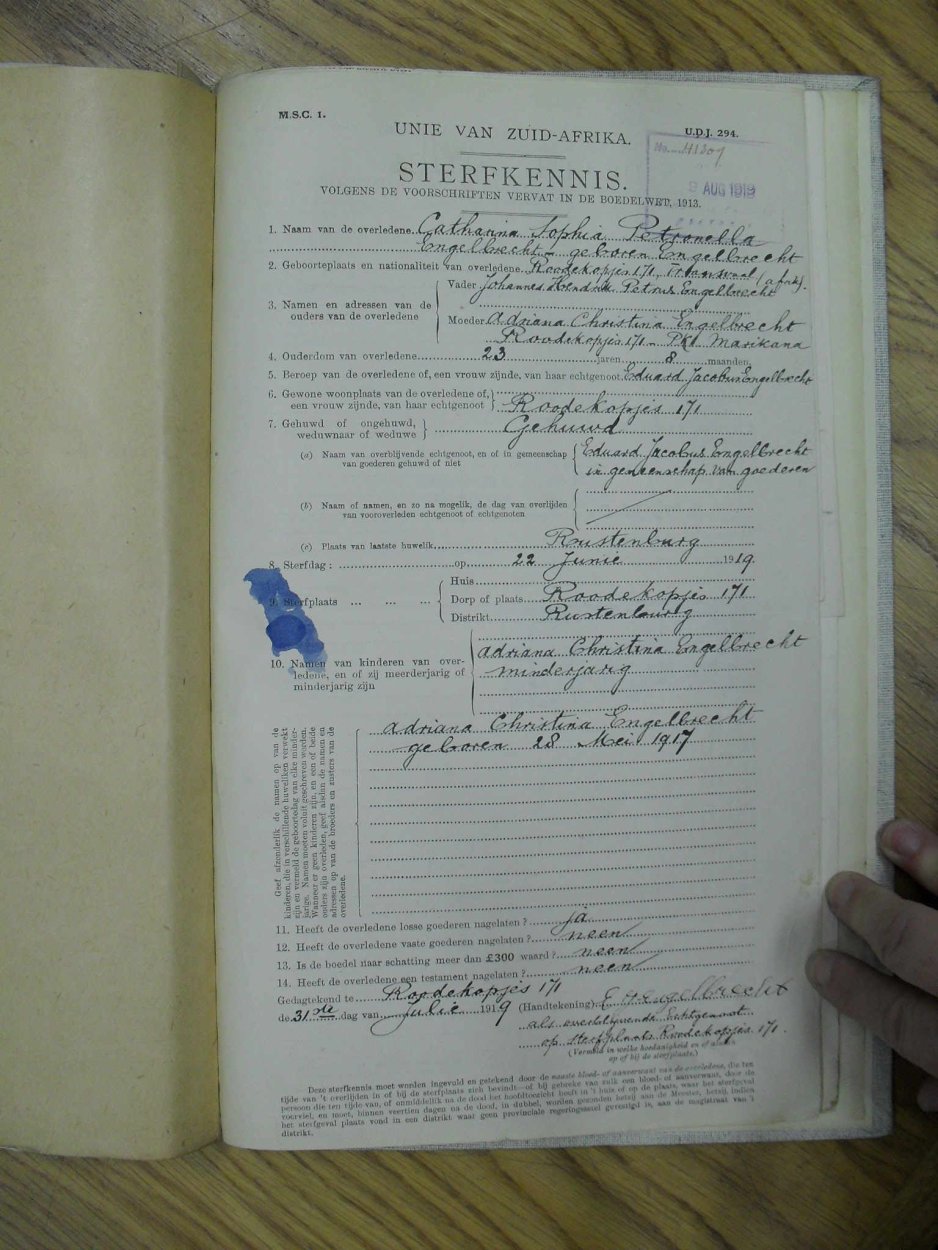 M.S.C. 1.
U.D.J. 294.
UNIE VAN ZUID-AFRIKA.
No. 41309
9 AUG 1919
STERFKENNIS.
VOLGENS DE VOORSCHRIFTEN VERVAT IN DE BOEDELWET, 1913.
1. Naam van de overledene Catharina Sophia Petronella
Engelbrecht - geboren Engelbrecht
2. Geboorteplaats en nationaliteit van overledene Roodekopjes 171, Transvaal (afrik).
3. Namen en adressen van de ouders van de overledene
Vader Johannes Hendrik Petrus Engelbrecht
Moeder Adriana Christina Engelbrecht
Roodekopjes 171 - Pkt Marikana
4. Ouderdom van overledene 23 jaren 8 maanden
5. Beroep van de overledene of, een vrouw zijnde, van haar echtgenoot Eduard Jacobus Engelbrecht
6. Gewone woonplaats van de overledene of,
een vrouw zijnde, van haar echtgenoot Roodekopjes 171
7. Gehuwd of ongehuwd,
weduwnaar of weduwe Gehuwd
(a) Naam van overblijvende echtgenoot, en of in gemeenschap
van goederen gehuwd of niet
Eduard Jacobus Engelbrecht
in gemeenschap van goederen
(b) Naam of namen, en zo na mogelik, de dag van overlijden
van vooroverleden echtgenoot of echtgenoten
(c) Plaats van laatste huwelik Rustenburg
8. Sterfdag : op 22 Junie 1919
9. Sterfplaats
Huis
Dorp of plaats Roodekopjes 171
Distrikt Rustenburg
10. Namen van kinderen van over-
ledene, en of zij meerderjarig of
minderjarig zijn
Adriana Christina Engelbrecht
minderjarig
Geef afzonderlik de namen op van de
kinderen, die in verschillende huweliken verwekt
zijn en vermeld de geboortedag van elke minder-
jarige. Namen moeten voluit geschreven worden.
Wanneer er geen kinderen zijn, en een of beide
ouders zijn overleden, geef alsdan de namen en
adressen op van de broeders en zusters van de
overledene.
Adriana Christina Engelbrecht
geboren 28 Mei 1917
11. Heeft de overledene losse goederen nagelaten ? ja
12. Heeft de overledene vaste goederen nagelaten ? neen
13. Is de boedel naar schatting meer dan £300 waard ? neen
14. Heeft de overledene een testament nagelaten ? neen
Gedagtekend te Roodekopjes 171
de 31ste dag van Julie 1919 (Handtekening) E J Engelbrecht
als overblijvende Echtgenoot
op sterfplaats Roodekopjes 171.
(Vermeld in welke hoedanigheid en of
op of bij de sterfplaats.)
Deze sterfkennis moet worden ingevuld en getekend door de naaste bloed- of aanverwant van de overledene, die ten
tijde van 't overlijden in of bij de sterfplaats zich bevindt—of bij gebreke van zulk een bloed- of aanverwant, door de
persoon die ten tijde van, of onmiddellik na de dood het hoofdtoezicht heeft in 't huis of op de plaats, waar het sterfgeval
voorviel, en moet, binnen veertien dagen na de dood, in dubbel, worden gezonden hetzij aan de Meester, hetzij, indien
het sterfgeval plaats vond in een distrikt waar geen provinciale regeringszetel gevestigd is, aan de magistraat van 't
distrikt.